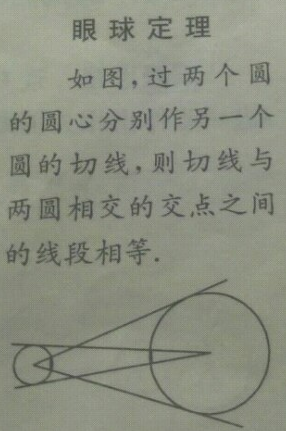 眼球定理
如图,过两个圆
的圆心分别作另一个
圆的切线,则切线与
两圆相交的交点之间
的线段相等.